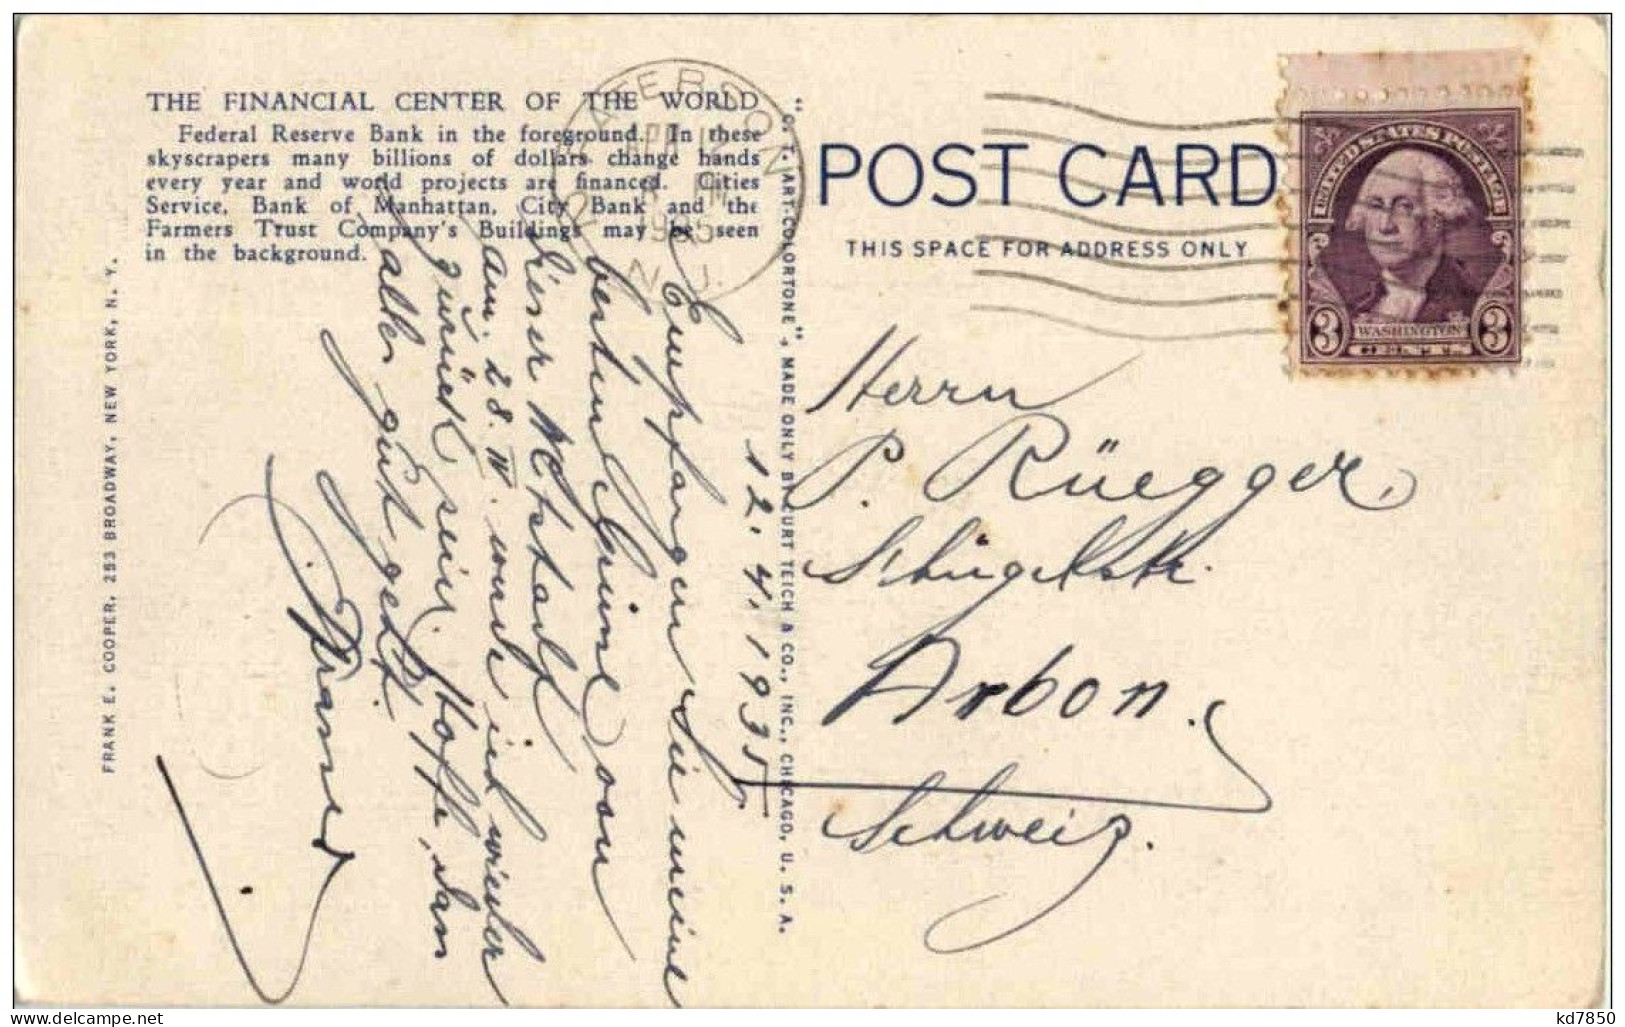 THE FINANCIAL CENTER OF THE WORLD
Federal Reserve Bank in the foreground. In these
skyscrapers many billions of dollars change hands
every year and world projects are financed. Cities
Service, Bank of Manhattan, City Bank and the
Farmers Trust Company's Buildings may be seen
in the background.
FRANK E. COOPER, 253 BROADWAY, NEW YORK, N. Y.
"C. T. ART-COLORTONE", MADE ONLY BY CURT TEICH & CO., INC., CHICAGO, U. S. A.
PATERSON
APR 12
1935
N. J.
POST CARD
THIS SPACE FOR ADDRESS ONLY
UNITED STATES POSTAGE
3 WASHINGTON 3
CENTS
12. 4. 1935
Empfangen Sie meine
besten Grüsse von
dieser Weltstadt
Am. 28. IV. werde ich wieder
zurück sein. Hoffe, dass
alles gut geht.
Herrn
P. Rüegger
Arbon.
Schweiz.
kd7850